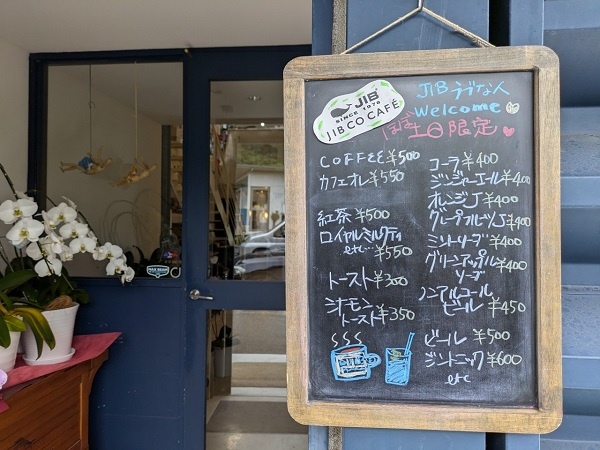 JIB
SINCE 1978
JIB CO CAFÉ
JIBラブな人
Welcome
ほぼ土日限定
COFFEE ¥500
カフェオレ ¥550
紅茶 ¥500
ロイヤルミルクティ
etc... ¥550
トースト ¥300
シナモン
トースト ¥350
コーラ ¥400
ジンジャーエール ¥400
オレンジJ ¥400
グレープフルーツJ ¥400
ミントソーダ ¥400
グリーンアップル ¥400
ソーダ
ノンアルコール
ビール ¥450
ビール ¥500
ジントニック ¥600
etc